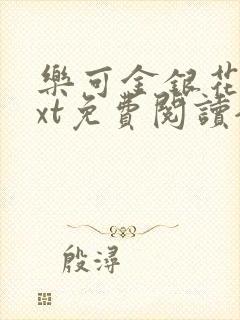 樂可金銀花
xt免費閱讀
殷潯